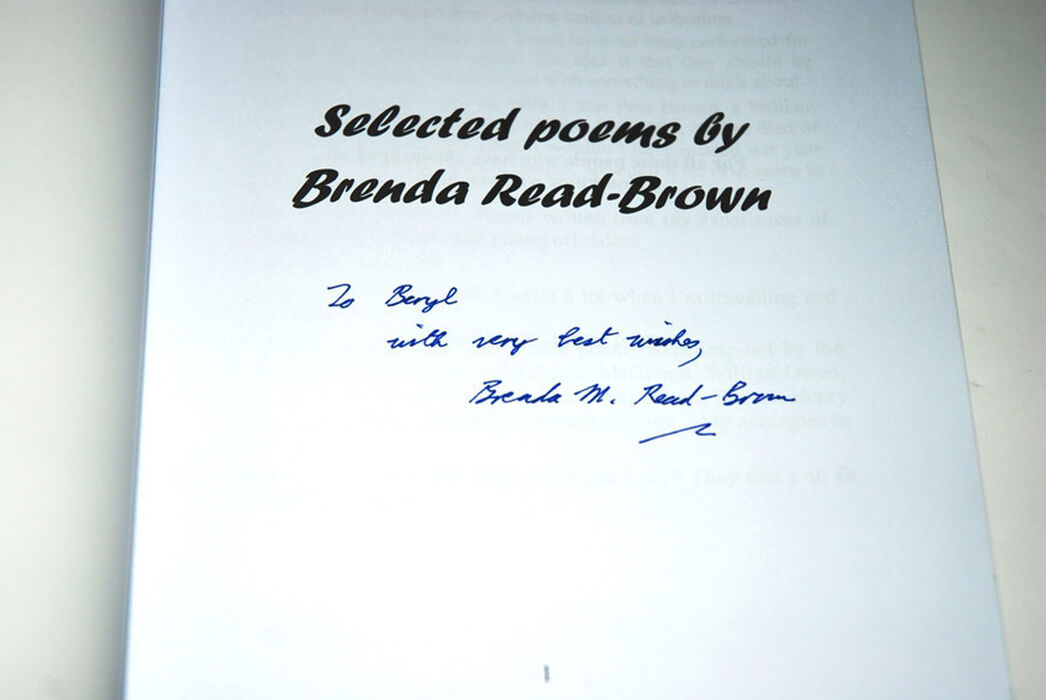 Selected poems by
Brenda Read-Brown
To Beryl
with very best wishes,
Brenda M. Read-Brown
1